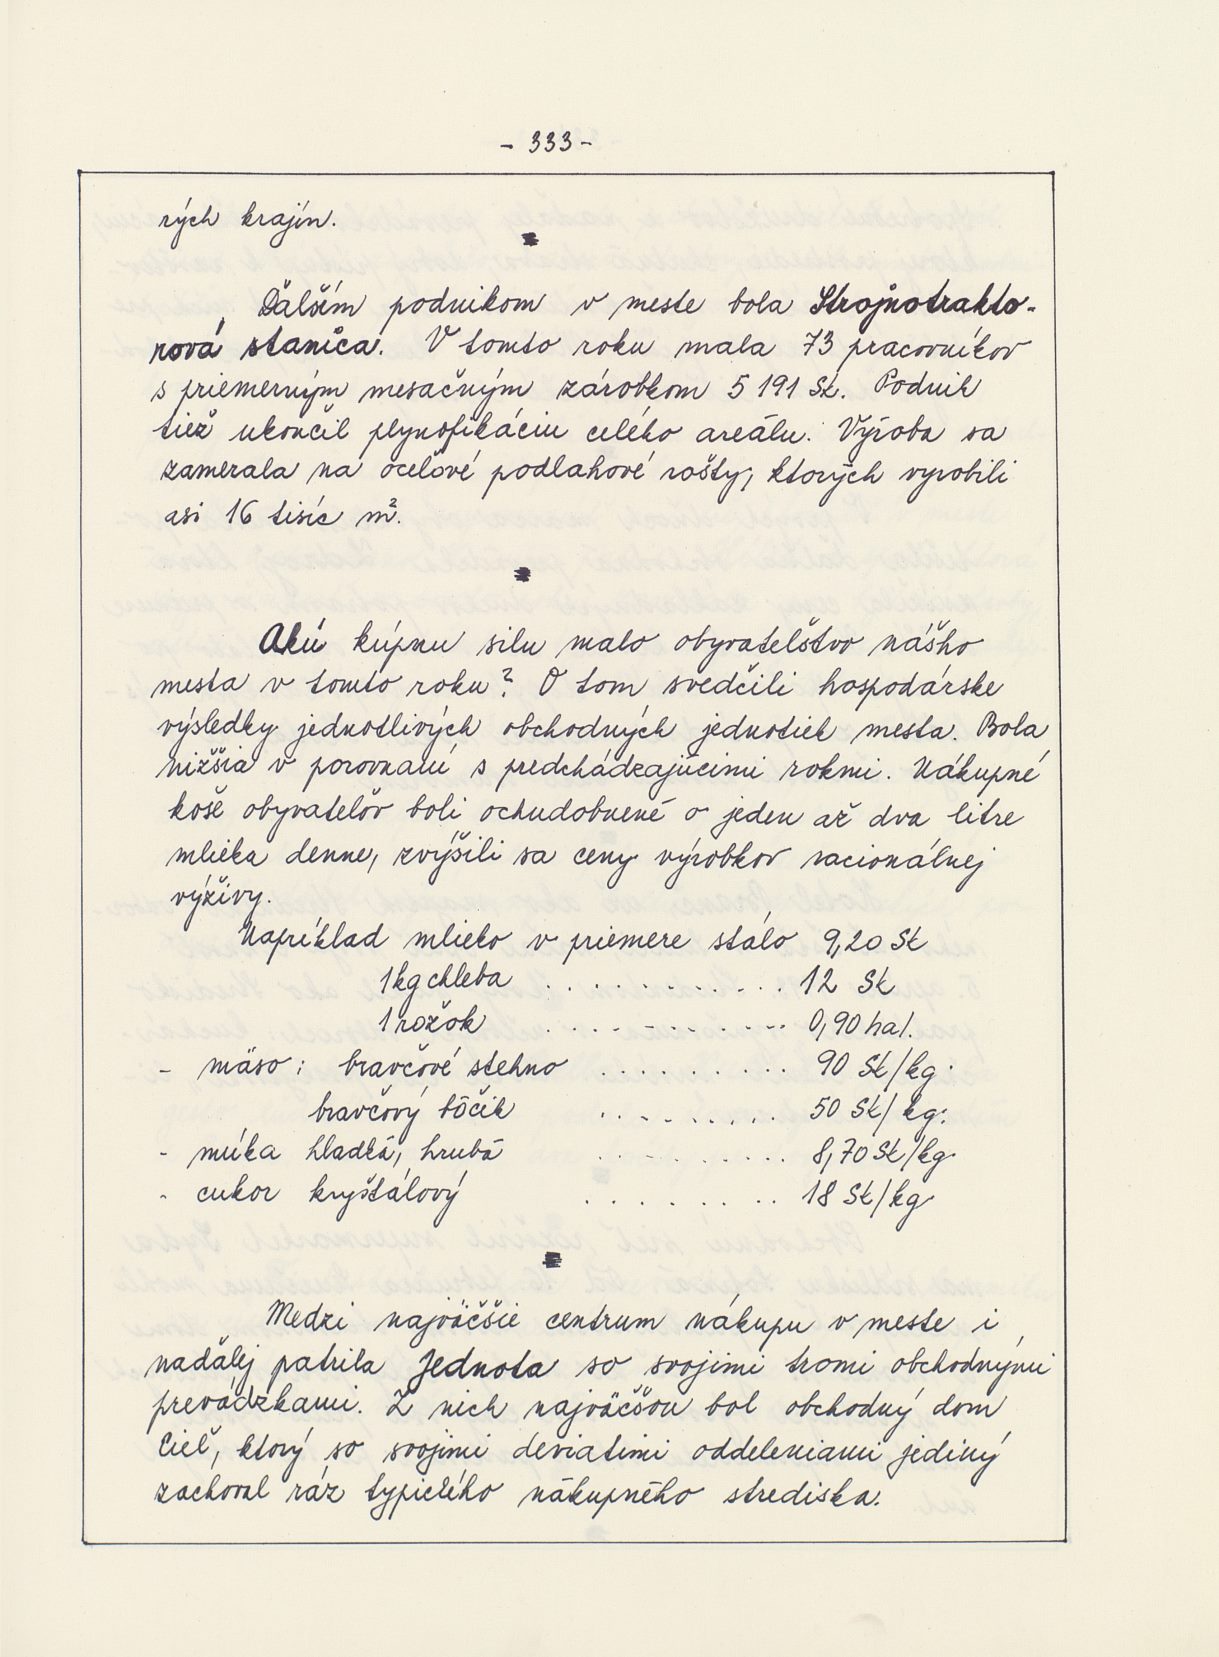 - 333 -
rých krajín.
Ďalším podnikom v meste bola Strojnotrakto-
rová stanica. V tomto roku mala 73 pracovníkov
s priemerným mesačným zárobkom 5 191 Sk. Podnik
tiež ukončil plynofikáciu celého areálu. Výroba sa
zamerala na oceľové podlahové rošty, ktorých vyrobili
asi 16 tisíc m².
Akú kúpnu silu malo obyvateľstvo nášho
mesta v tomto roku? O tom svedčili hospodárske
výsledky jednotlivých obchodných jednotiek mesta. Bola
nižšia v porovnaní s predchádzajúcimi rokmi. Nákupné
koše obyvateľov boli ochudobnené o jeden až dva litre
mlieka denne, zvýšili sa ceny výrobkov racionálnej
výživy.
Napríklad mlieko v priemere stálo 9,20 Sk
1 kg chleba . . . . . . . . . . . 12 Sk
1 rožok . . . . . . . . . . . 0,90 hal.
- mäso: bravčové stehno . . . . . . . . . 90 Sk/kg.
bravčový bôčik . . . . . . . . 50 Sk/kg.
- múka hladká, hrubá . . . . . . . . . 8,70 Sk/kg.
- cukor kryštálový . . . . . . . . 18 Sk/kg.
Medzi najväčšie centrum nákupu v meste i
naďalej patrila Jednota so svojimi tromi obchodnými
prevádzkami. Z nich najväčšou bol obchodný dom
Cieľ, ktorý so svojimi deviatimi oddeleniami jediný
zachoval ráz typického nákupného strediska.